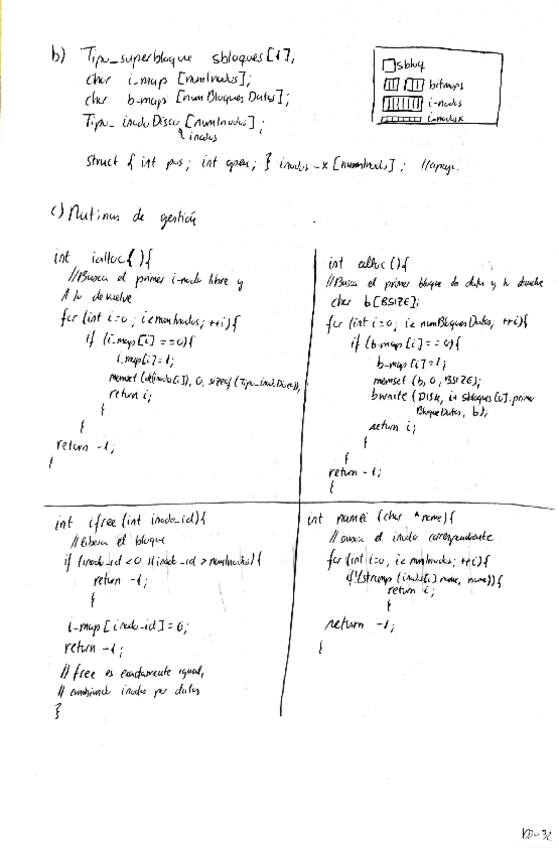 b) Tipo_superbloque sbloques[1],
char i_map [numInodos];
char b_map [numBloquesDatos];
Tipo_inodoDisco [numInodos];
inodos
struct { int pos; int open; } inodos_x [numInodos]; //apoyo.
sbloq
bitmaps
i-nodos
i-nodos x
c) Rutinas de gestión
int ialloc(){
//Busca el primer i-nodo libre y
// lo devuelve
for (int i=0; i<numInodos; ++i){
if (i_map[i]==0){
i_map[i]=1;
memset (&(inodos[i]), 0, sizeof (Tipo_inodoDisco));
return i;
}
}
return -1;
}
int alloc(){
//Busca el primer bloque de datos y lo devuelve
char b[BSIZE];
for (int i=0; i<numBloquesDatos; ++i){
if (b_map[i]==0){
b_map[i]=1;
memset (b, 0, BSIZE);
bwrite (DISK, i+ sbloques[0].primer
BloqueDatos, b);
return i;
}
}
return -1;
}
int ifree (int inodo_id){
//libera el bloque
if (inodo_id <0 || inodo_id > numInodos){
return -1;
}
i_map[inodo_id]=0;
return -1;
// free es exactamente igual,
// cambiando inodos por datos
}
int namei (char *name){
// busca el inodo correspondiente
for (int i=0, i<numInodos; ++i){
if(!(strcmp (inodos[i].name, name)){
return i;
}
return -1;
}